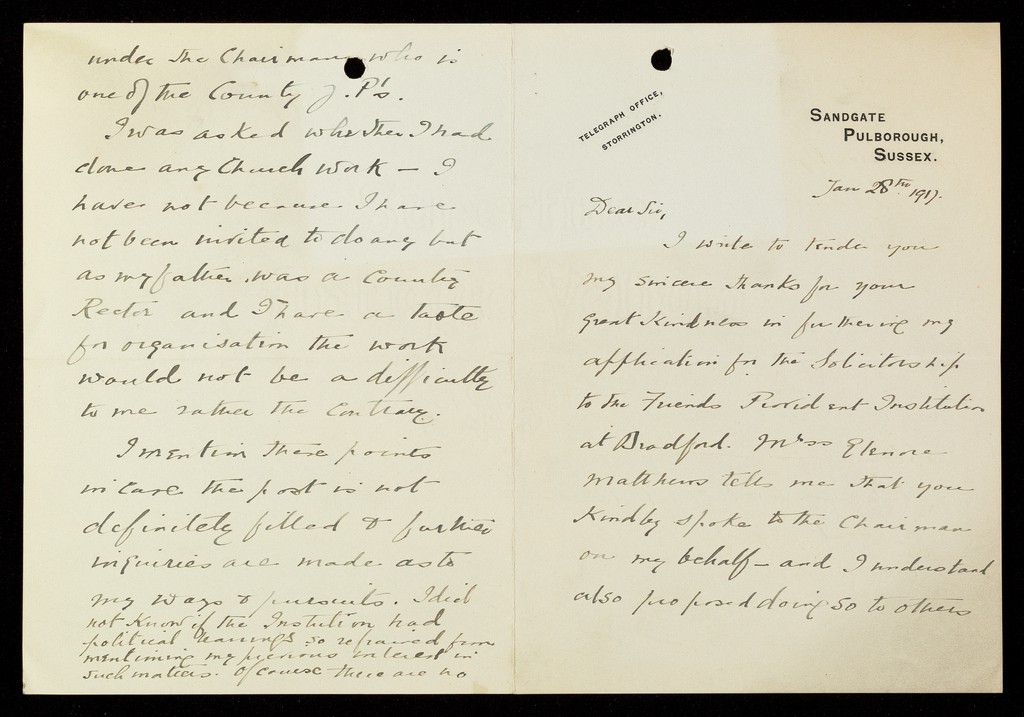 under the Chairman who is
one of the County J.P's.
I was asked whether I had
done any Church work — I
have not because I have
not been invited to do any but
as my father was a Country
Rector and I have a taste
for organisation the work
would not be a difficulty
to me rather the contrary.
I mention these points
in case the post is not
definitely filled & further
inquiries are made as to
my ways & pursuits. I did
not know if the Institution had
political leanings so refrained from
mentioning my previous interest in
such matters. Of course there are no
TELEGRAPH OFFICE,
STORRINGTON.
SANDGATE
PULBOROUGH,
SUSSEX.
Jan 28th 1917.
Dear Sir,
I write to tender you
my sincere thanks for your
great kindness in furthering my
application for the Solicitorship
to the Friends Provident Institution
at Bradford. Miss Elenore
Matthews tells me that you
kindly spoke to the Chairman
on my behalf — and I understand
also proposed doing so to others